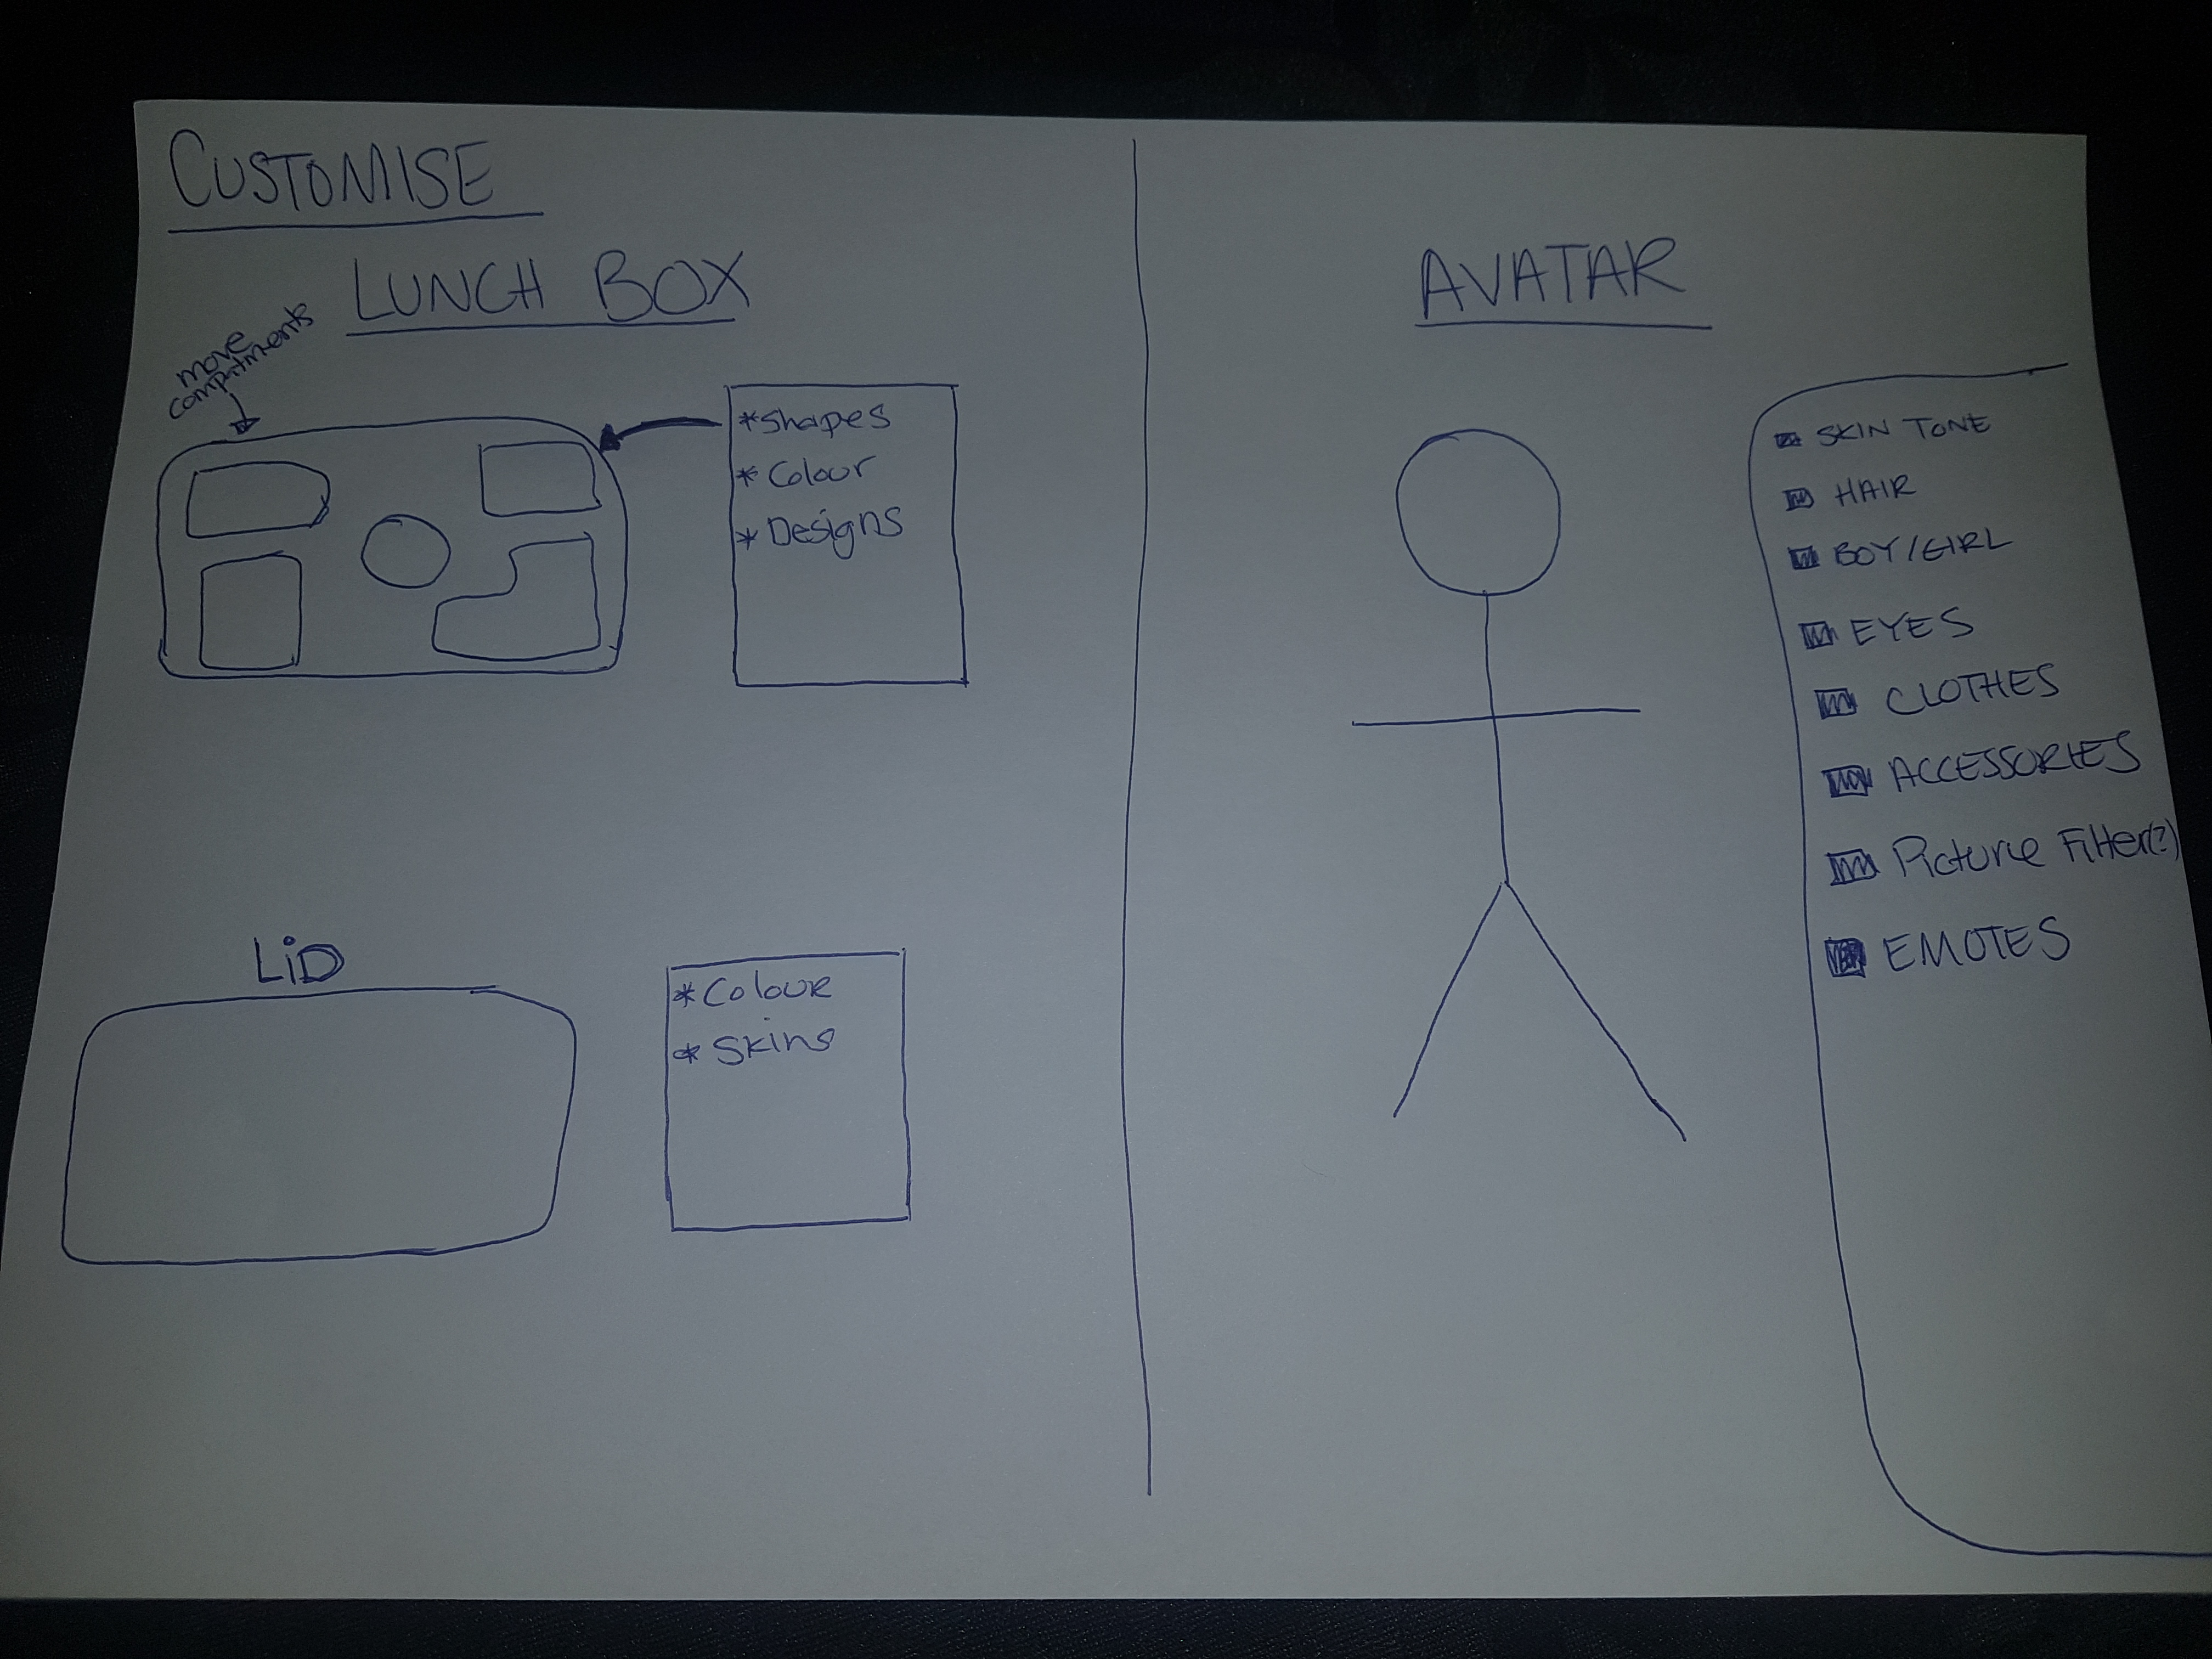 CUSTOMISE
LUNCH BOX
move
compitments
*Shapes
*Colour
*Designs
LiD
*Colour
*Skins
AVATAR
SKIN TONE
HAIR
BOY/GIRL
EYES
CLOTHES
ACCESSORIES
Picture Filter(?)
EMOTES